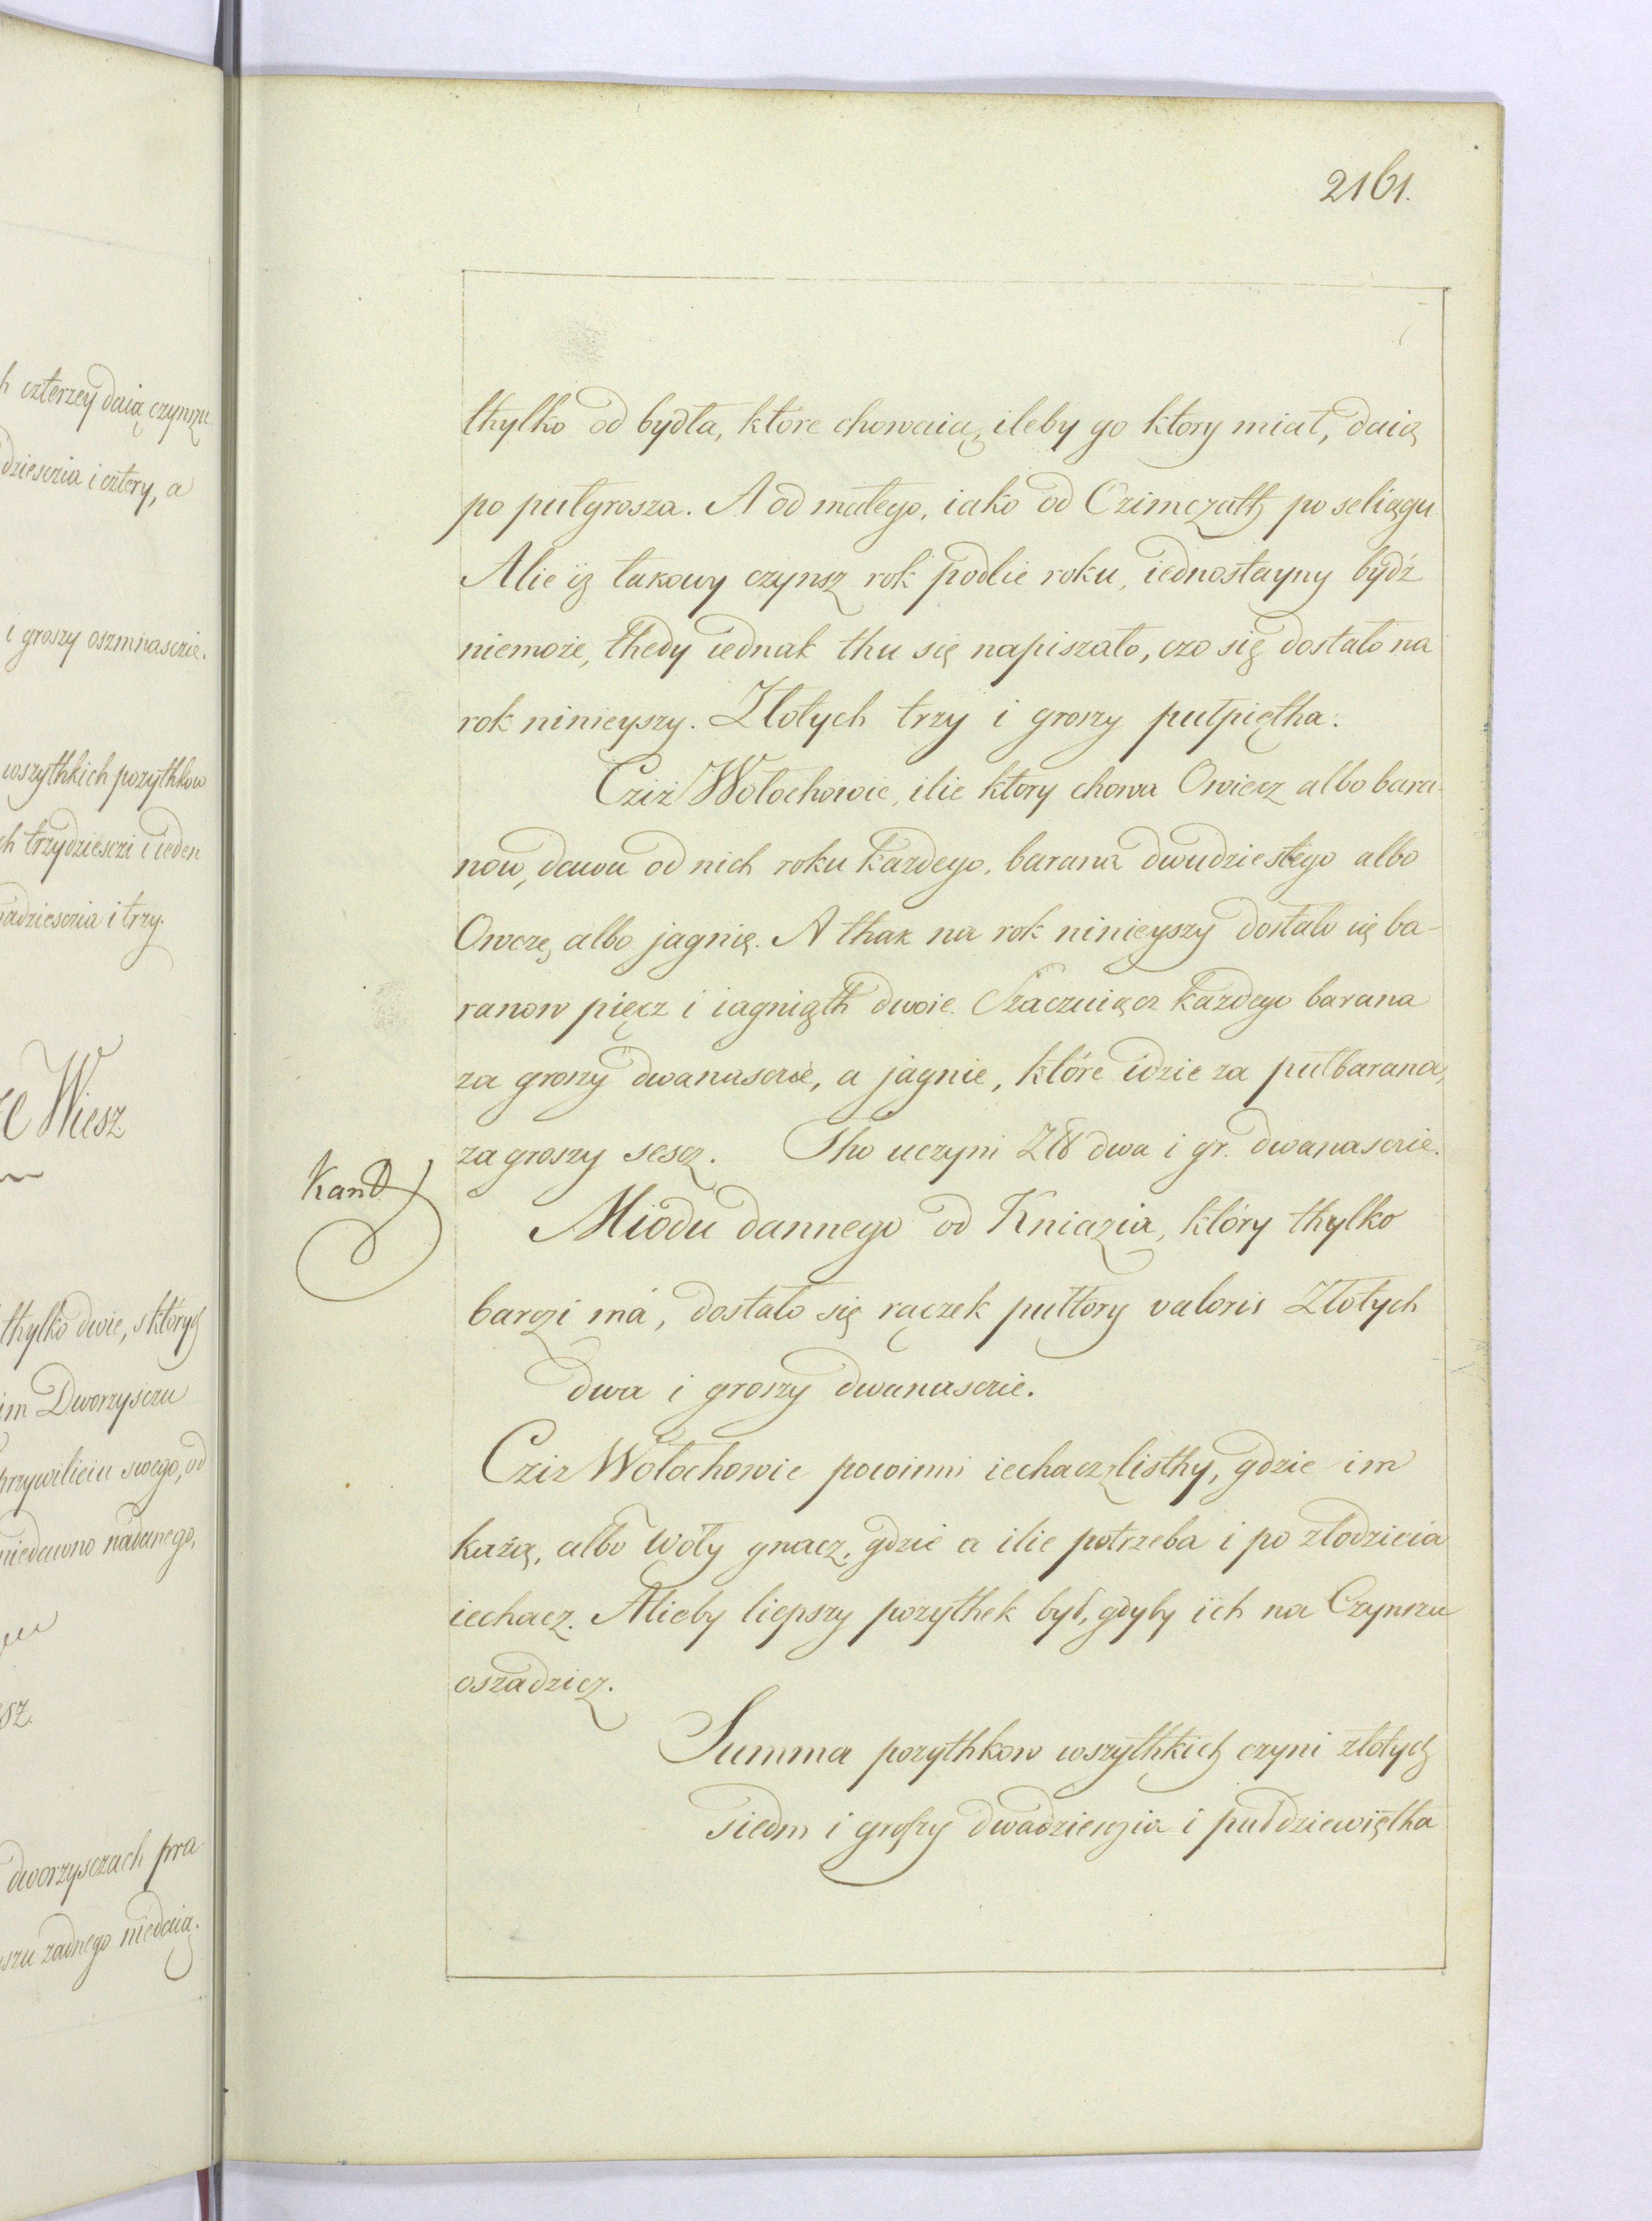 h czterzey daią czynszu
dziesczia i cztery, a
i groszy oszmnasczie.
wszythkich pozythkow
ch trzydziesczi i ieden
adziesczia i trzy.
Wiesz
thylko dwie, s których
im Dworzysczu
przywilieiu swego, od
niedawno nadanego,
sz.
dworzysczach pra-
szu zadnego niedaią.
2161.
thylko od bydła, które chowaią, ileby go ktory miał, daią
po pułgrosza. A od małego, iako od Czimczath po seliągu
Alie iż takowy czynsz rok podlie roku, iednostayny bydź
niemoże, thedy iednak thu się napiszało, czo się dostało na
rok ninieyszy. Złotych trzy i groszy pułpiętha.
Cziż Wołochowie, ilie ktory chowa Owiecz albo bara-
now, dawa od nich roku kazdego, barana dwudziestego albo
Owczę, albo jagnię. A thak na rok ninieyszy dostało się ba-
ranow pięcz i iagniąth dwoie. Szaczuiącz kazdego barana
za groszy dwanasczie, a jagnie, które idzie za pułbarana,
za groszy sescz. Tho uczyni Zł dwa i gr. dwanasczie.
Kand
Miodu dannego od Kniazia, który thylko
barczi má, dostało się rączek pułtory valoris Złotych
dwa i groszy dwanasczie.
Cziz Wołochowie powinni iechacz z listhy, gdzie im
każą, albo woły gnacz, gdzie a ilie potrzeba i po złodzieia
iechacz. Alieby liepszy pozythek był, gdyby ich na Czynszu
oszadzicz.
Summa pozythkow wszythkich czyni złotych
siedm i groszy dwadziesczia i pułdziewiętha